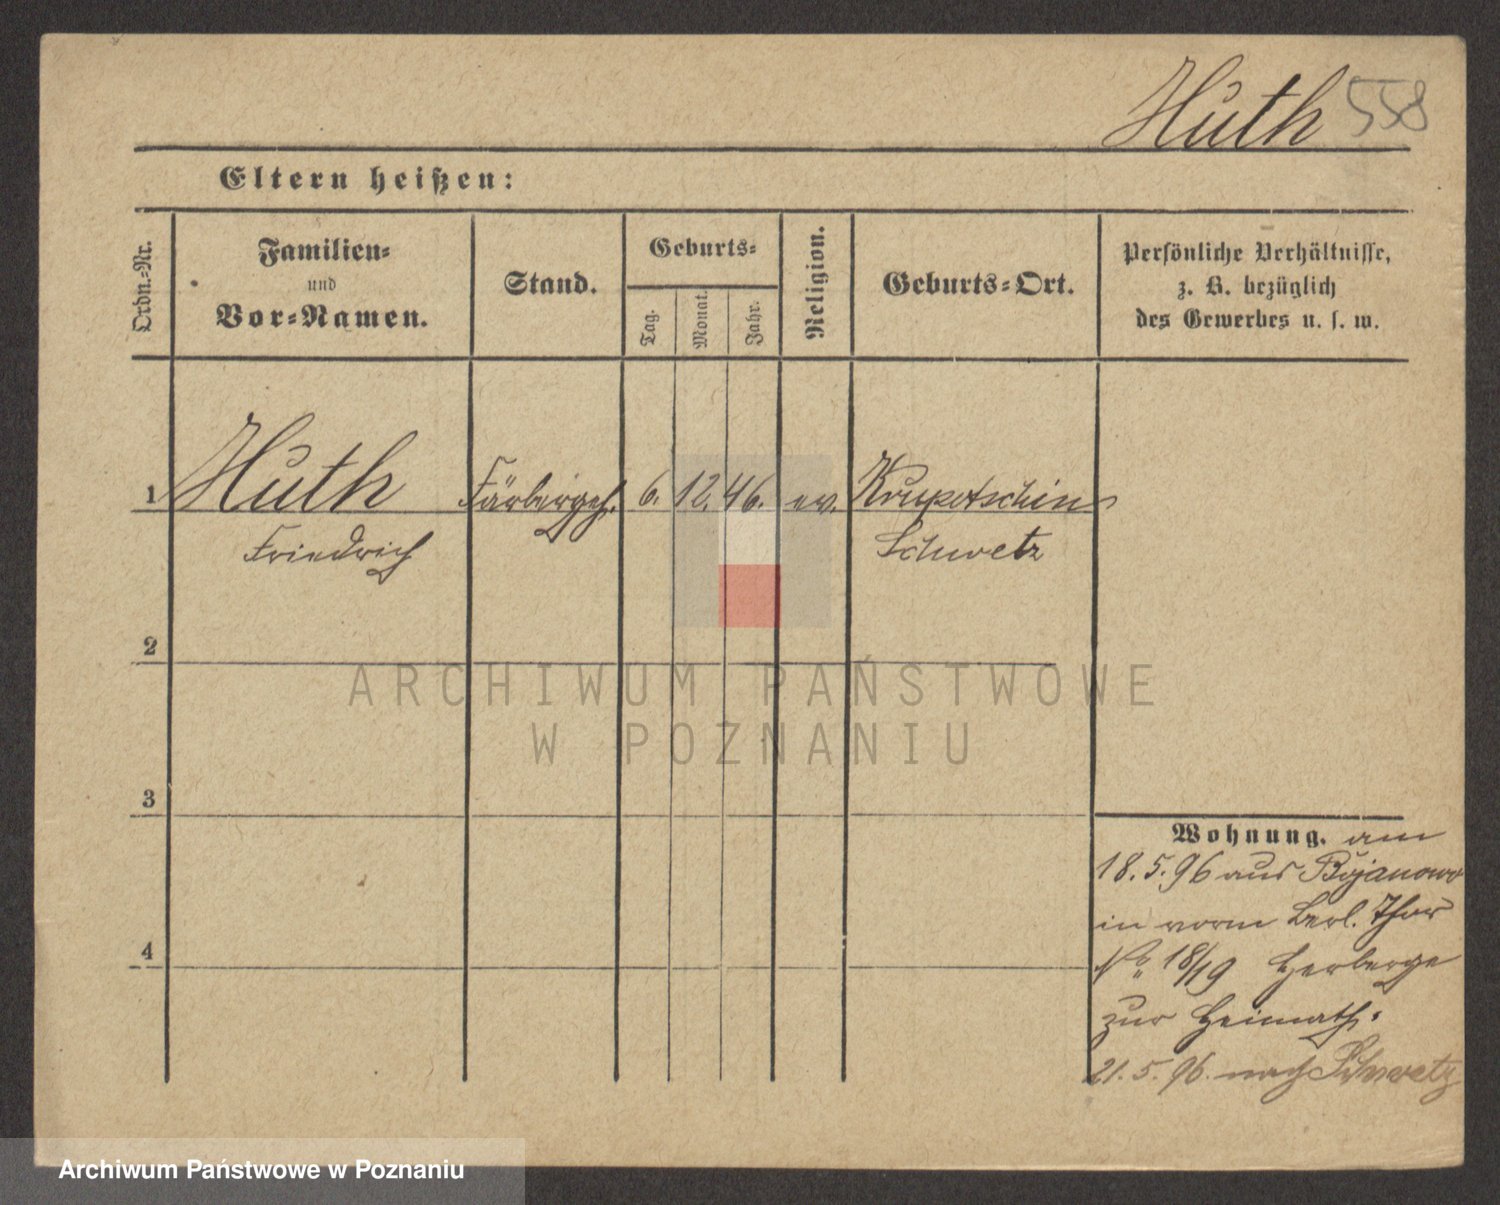 Huth 558
Eltern heißen:
Ordn.-Nr.
Familien-
und
Vor-Namen.
Stand.
Geburts-
Tag.
Monat.
Jahr.
Religion.
Geburts-Ort.
Persönliche Verhältnisse,
z. B. bezüglich
des Gewerbes u. s. w.
1 Huth Färbergeh. 6. 12. 46. ev. Krupotschin
Friedrich Schwetz
2
ARCHIWUM PAŃSTWOWE
W POZNANIU
3
Wohnung. am
18.5.96 aus Bojanowo
in vorm Berl. Thor
No 18/19 Herberge
4
zur Heimath.
21.5.96. nach Schwetz
Archiwum Państwowe w Poznaniu